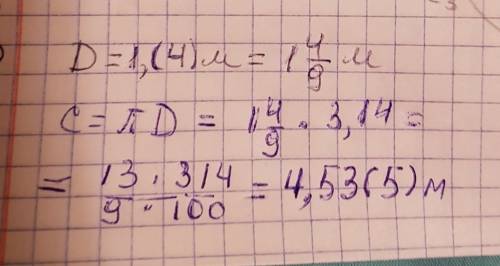 D = 1,(4) м = 1 4/9 м
C = πD = 1 4/9 · 3,14 =
= 13 · 314 / 9 · 100 = 4,53(5) м